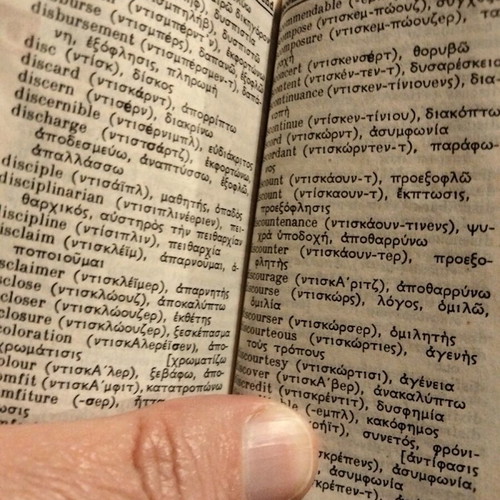 disburse (ντισμπέρς), δαπανῶ
disbursement (ντισμπέρσμεν-τ), δαπά-
νη, ἐξόφλησις, πληρωμή
disc (ντίσκ), δίσκος
discard (ντισκάρντ), ἀπορρίπτω
discern (ντισέρν), διακρίνω
discernible (ντισέρνιμπλ), εὐδιάκριτος
discharge (ντιστσάρτζ), ἐκφορτώνω,
ἀποδεσμεύω, ἀναπτύσσω, ἐξοφλῶ,
ἀπαλλάσσω
disciple (ντισάϊπλ), μαθητής, ὀπαδός
disciplinarian (ντισιπλινέεριεν), πει-
θαρχικός, αὐστηρὸς τὴν πειθαρχίαν
discipline (ντίσιπλιν), πειθαρχία
isclaim (ντισκλέϊμ), ἀπαρνοῦμαι, ἀ-
ποποιοῦμαι
sclaimer (ντισκλέϊμερ), ἀπαρνητής
sclose (ντισκλώουζ), ἀποκαλύπτω
closer (ντισκλώουζερ), ἐκθέτης
closure (ντισκλώουζερ), ξεσκέπασμα
coloration (ντισκΑλερέϊσεν), ἀπο-
χρωμάτισις [χρωματίζω
olour (ντισκΑ΄λερ), ξεβάφω, ἀπο-
omfit (ντισκΑ΄μφιτ), κατατροπώνω
mfiture (-σερ), ἧττα
ommendable
compose (ντισκεμ-πώουζ)
omposure (ντισκεμ-πώουζερ)
ncert (ντισκενσέρτ), θορυβῶ
ontent (ντισκέν-τεν-τ), δυσαρέσκεια
continuance (ντισκεν-τίνιουενς), δια-
κοπή
continue (ντίσκεν-τίνιου), διακόπτω
cord (ντισκώρντ), ἀσυμφωνία
cordant (ντισκώρντεν-τ), παράφω-
νος
scount (ντισκάουν-τ), προεξοφλῶ
count (ντίσκαουν-τ), ἔκπτωσις,
προεξόφλησις
countenance (ντισκάουν-τινενς), ψυ-
χρὰ ὑποδοχή, ἀποθαρρύνω
counter (ντισκάουν-τερ), προεξο-
φλητής
courage (ντισκΑ΄ριτζ), ἀποθαρρύνω
course (ντισκώρς), λόγος, ὁμιλῶ,
ὁμιλία
courser (ντισκώρσερ), ὁμιλητής
courteous (ντισκώρτιες), ἀγενής
τοὺς τρόπους
courtesy (ντισκώρτισι), ἀγένεια
cover (ντισκΑ΄βερ), ἀνακαλύπτω
credit (ντισκρέντιτ), δυσφημία
(-εμπλ), κακόφημος
συνετός, φρόνι-
[ἀντίφασις
ἀσυμφωνία,
ἀσυμφωνία